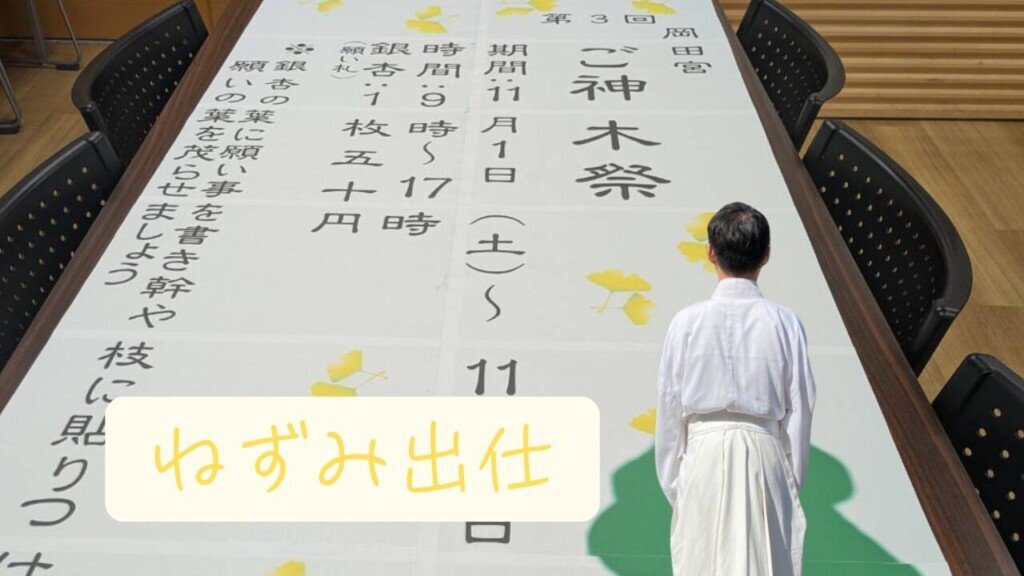 岡田宮
第3回
ご神木祭
期間:11月1日(土)〜11
日
時間:9時〜17時
銀杏:1枚五十円
(願い札)
※銀杏の葉に願い事を書き幹や枝に貼りつけ
願いの葉を茂らせましょう
ねずみ出仕